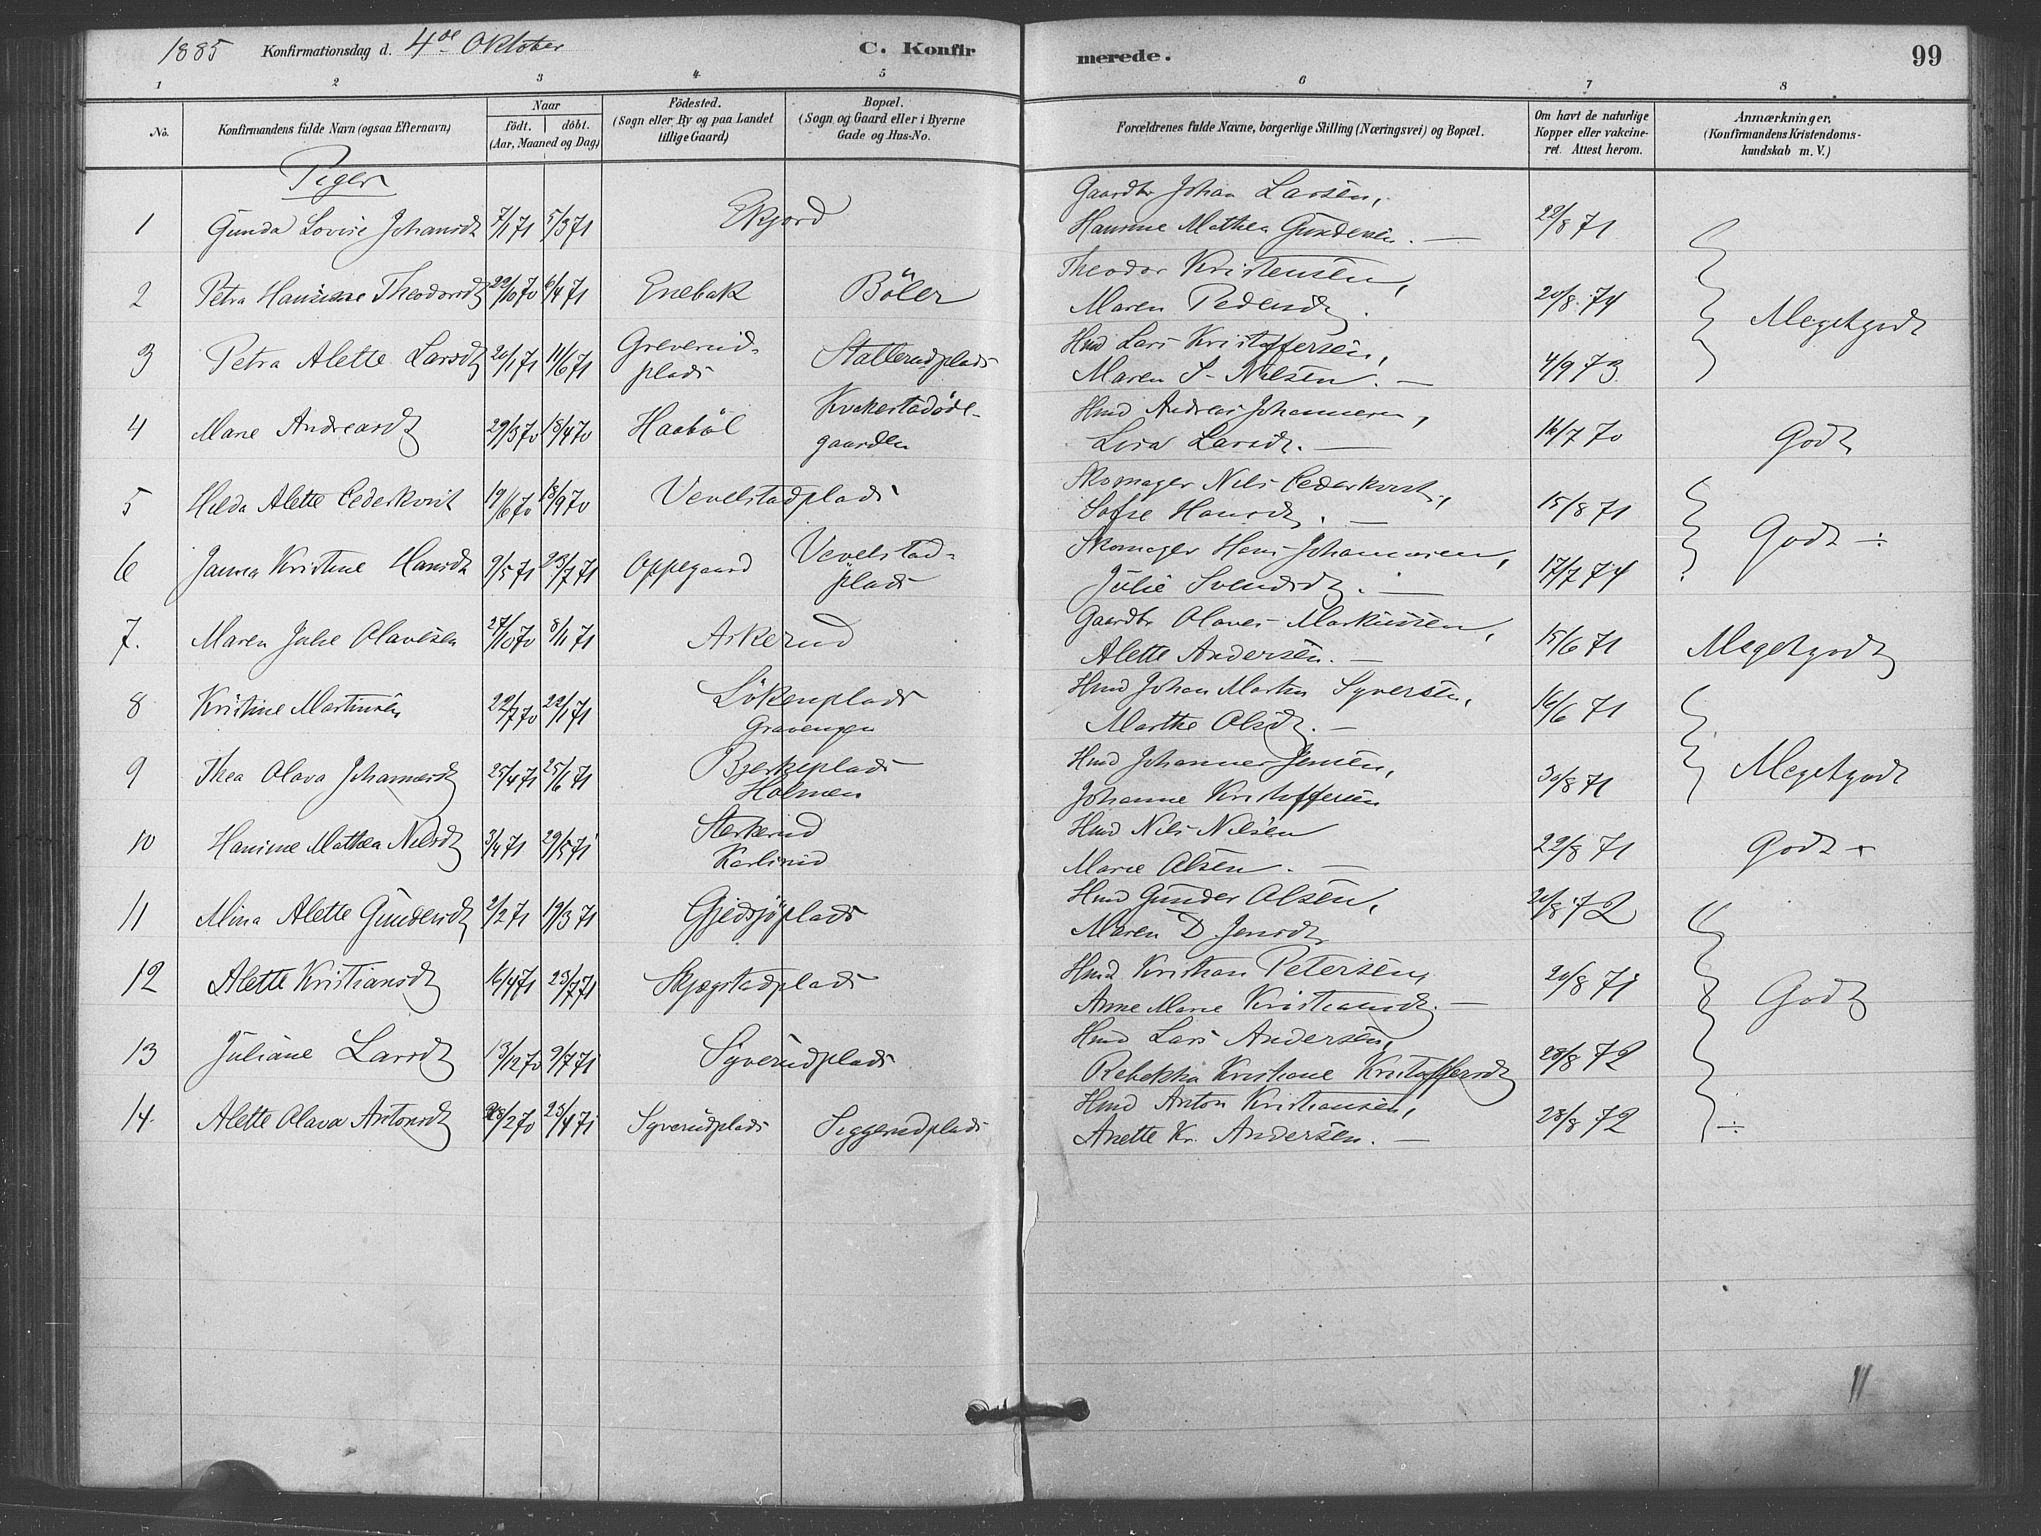 1885 Konfirmationsdag d. 4de Oktober C. Konfir merede. 99
1 2 3 4 5 6 7 8
No. Konfirmandens fulde Navn (ogsaa Efternavn) Naar födt. döbt. (Aar, Maaned og Dag)
Födested. (Sogn eller By og paa Landet tillige Gaard)
Bopæl. (Sogn og Gaard eller i Byerne Gade og Hus-No.
Forældrenes fulde Navne, borgerlige Stilling (Næringsvei) og Bopæl.
Om havt de naturlige Kopper eller vakcineret. Attest herom.
Anmærkninger, (Konfirmandens Kristendomskundskab m. V.)
Piger
Gaardbr Johan Larsen,
1 Gunda Lovise Johansdt 7/1 71 5/3 71 Ekjord Hanne Mathea Gundersen. — 22/8 71
Theodor Kristensen,
2 Petra Hansine Theodorsdt 22/10 70 6/4 71 Enebak Böler Maren Pedersdt. 20/8 74 Megetgodt
3 Petra Alette Larsdt 20/1 71 11/6 71 Greverud- plads Stallerudplads Hmd Lars Kristoffersen,
Maren S. Nilsen. — 4/9 73
4 Marie Andreasdt 29/3 70 18/4 70 Haaböl Kvakestadöde- gaarden Hmd Andreas Johannesen,
Lisa Larsdt. — 16/7 70 Godt
5 Hilda Alette Cederkvist 19/6 70 18/9 70 Vevelstadplads Skomager Nils Cederkvist,
Sofie Hansdt. — 15/8 71 Godt ÷
6 Janna Kristine Hansdt 9/5 71 23/7 71 Oppegaard Vevelstad- plads Skomager Hans Johannesen,
Julie Svendsdt. — 17/7 74
7. Maren Julie Olavesen 27/10 70 8/1 71 Askerud Gaardbr Olaves Markussen,
Alette Andersen. — 15/6 71 Megetgodt
8 Kristine Martinsen 22/7 70 22/1 71 Lökenplads
Gravengen Hmd Johan Martin Syversen,
Marthe Olsdt. — 16/6 71
9 Thea Olava Johannesdt 25/4 71 25/6 71 Bjerkeplads
Holmen Hmd Johannes Jensen,
Johanne Kristoffersen 30/8 71 Megetgodt
10 Hansine Mathea Nilsdt 3/4 71 29/5 71 Sterkerud
Karlsrud Hmd Nils Nilsen
Marie Olsen. — 22/8 71 Godt
11 Mina Alette Gundersdt 2/2 71 19/3 71 Gjedsjöplads Hmd Gunder Olsen,
Maren D Jensdt 20/8 72
12 Alette Kristiansdt 16/4 71 23/7 71 Skjægstadplads Hmd Kristian Petersen,
Anne Marie Kristiansdt. — 20/8 71 Godt
13 Juliane Larsdt 13/12 70 9/7 71 Syverudplads Hmd Lars Andersen,
Rebekka Kristiane Kristoffersdt 28/8 72
14. Alette Olava Antonsdt 28/2 70 23/4 71 Syverudplads Siggerudplads Hmd Anton Kristiansen,
Anette Kr. Andersen. — 28/8 72 ÷